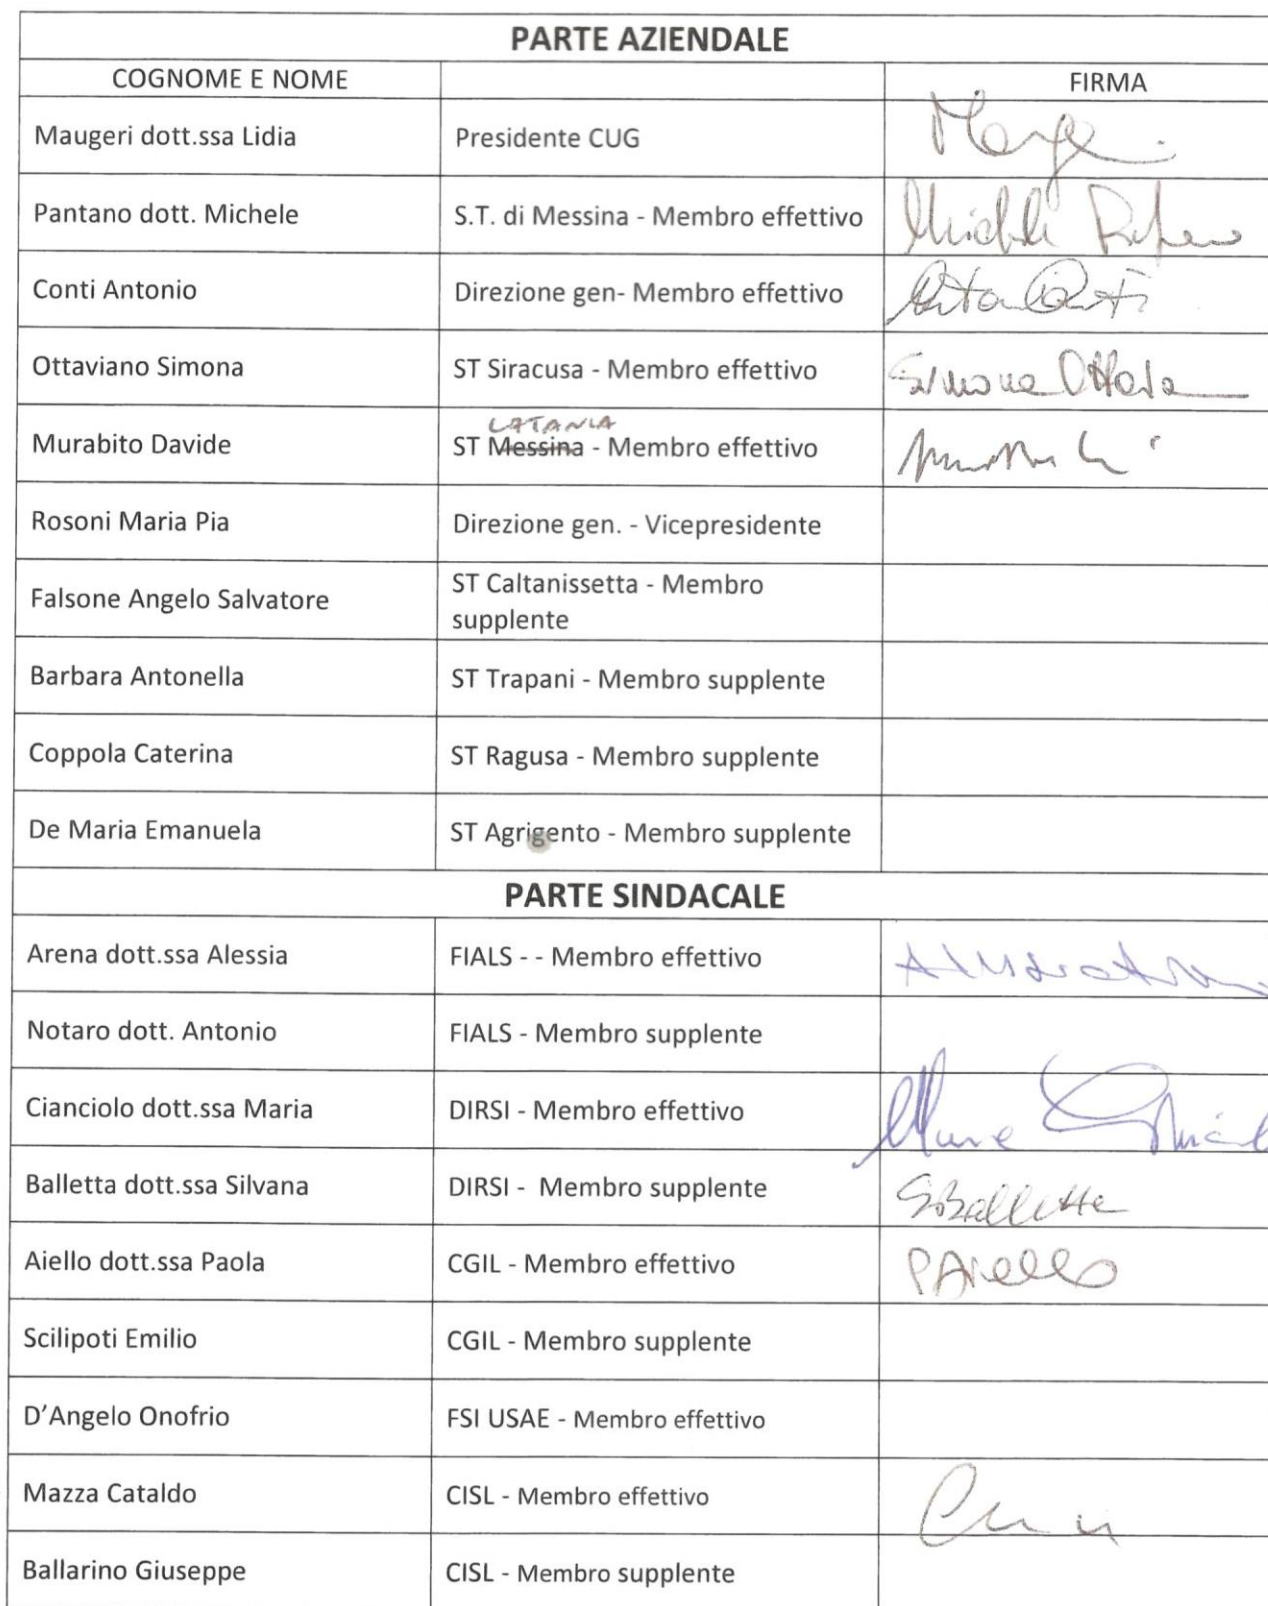 PARTE AZIENDALE
COGNOME E NOME FIRMA
Maugeri dott.ssa Lidia Presidente CUG
Pantano dott. Michele S.T. di Messina - Membro effettivo
Conti Antonio Direzione gen- Membro effettivo
Ottaviano Simona ST Siracusa - Membro effettivo Simona
CATANIA
Murabito Davide ST Messina - Membro effettivo
Rosoni Maria Pia Direzione gen. - Vicepresidente
Falsone Angelo Salvatore ST Caltanissetta - Membro
supplente
Barbara Antonella ST Trapani - Membro supplente
Coppola Caterina ST Ragusa - Membro supplente
De Maria Emanuela ST Agrigento - Membro supplente
PARTE SINDACALE
Arena dott.ssa Alessia FIALS - - Membro effettivo
Notaro dott. Antonio FIALS - Membro supplente
Cianciolo dott.ssa Maria DIRSI - Membro effettivo
Balletta dott.ssa Silvana DIRSI - Membro supplente SBalletta
Aiello dott.ssa Paola CGIL - Membro effettivo PAiello
Scilipoti Emilio CGIL - Membro supplente
D'Angelo Onofrio FSI USAE - Membro effettivo
Mazza Cataldo CISL - Membro effettivo
Ballarino Giuseppe CISL - Membro supplente